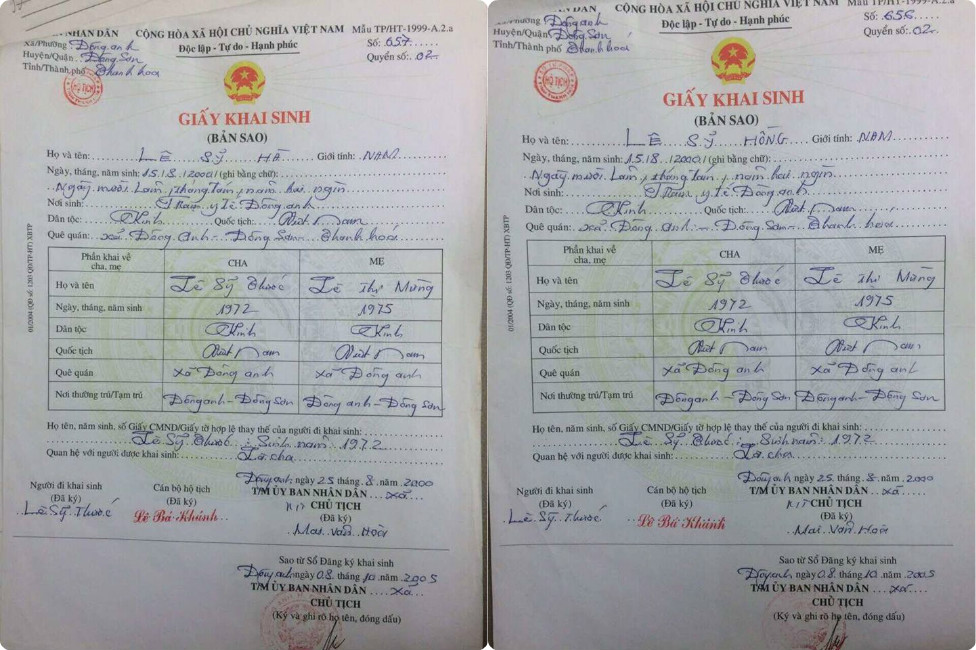 N DÂN CỘNG HÒA XÃ HỘI CHỦ NGHĨA VIỆT NAM Mẫu TP/HT-1999-A.2.a
Xã/Phường Đông anh Độc lập - Tự do - Hạnh phúc Số: 657
Huyện/Quận Đông Sơn Quyển số: 02
Tỉnh/Thành phố Thanh hoá
GIẤY KHAI SINH
(BẢN SAO)
Họ và tên: LÊ SỸ HÀ Giới tính: NAM
Ngày, tháng, năm sinh: 15/8/2000/ (ghi bằng chữ):
Ngày mười Lăm, tháng tám, năm hai ngìn
Nơi sinh: Trạm y tế Đông anh
Dân tộc: Kinh Quốc tịch: Việt Nam
Quê quán: xã Đông Anh - Đông Sơn - Thanh hoá
Phần khai về cha, mẹ CHA MẸ
Họ và tên Lê Sỹ Thước Lê Thị Mừng
Ngày, tháng, năm sinh 1972 1975
Dân tộc Kinh Kinh
Quốc tịch Việt Nam Việt Nam
Quê quán xã Đông anh xã Đông anh
Nơi thường trú/Tạm trú Đông anh - Đông Sơn Đông anh - Đông Sơn
Họ tên, năm sinh, số Giấy CMND/Giấy tờ hợp lệ thay thế của người đi khai sinh:
Lê Sỹ Thước : Sinh năm : 1972
Quan hệ với người được khai sinh: Là cha
Đông anh ngày 25 tháng 8 năm 2000
Người đi khai sinh Cán bộ hộ tịch T/M ỦY BAN NHÂN DÂN xã
(Đã ký) (Đã ký) CHỦ TỊCH
Lê Sỹ Thước Lê Bá Khánh (Đã ký)
Mai Văn Hoà
Sao từ Sổ Đăng ký khai sinh
Đông anh ngày 08 tháng 10 năm 2005
T/M ỦY BAN NHÂN DÂN xã
CHỦ TỊCH
(Ký và ghi rõ họ tên, đóng dấu)
01/2004 (QĐ số: 1203 QĐ/TP-HT) XBTP
N DÂN CỘNG HÒA XÃ HỘI CHỦ NGHĨA VIỆT NAM Mẫu TP/HT-1999-A.2.a
Xã/Phường Đông anh Độc lập - Tự do - Hạnh phúc Số: 656
Huyện/Quận Đông Sơn Quyển số: 02
Tỉnh/Thành phố Thanh hoá
HỘ TỊCH
GIẤY KHAI SINH
(BẢN SAO)
Họ và tên: LÊ SỸ HỒNG Giới tính: NAM
Ngày, tháng, năm sinh: 15/8/2000/ (ghi bằng chữ):
Ngày mười Lăm, tháng tám, năm hai ngìn
Nơi sinh: Trạm y tế Đông anh
Dân tộc: Kinh Quốc tịch: Việt Nam
Quê quán: xã Đông Anh - Đông Sơn - Thanh hoá
Phần khai về cha, mẹ CHA MẸ
Họ và tên Lê Sỹ Thước Lê Thị Mừng
Ngày, tháng, năm sinh 1972 1975
Dân tộc Kinh Kinh
Quốc tịch Việt Nam Việt Nam
Quê quán xã Đông anh xã Đông anh
Nơi thường trú/Tạm trú Đông anh - Đông Sơn Đông anh - Đông Sơn
Họ tên, năm sinh, số Giấy CMND/Giấy tờ hợp lệ thay thế của người đi khai sinh:
Lê Sỹ Thước : Sinh năm : 1972
Quan hệ với người được khai sinh: Là cha
Đông anh ngày 25 tháng 8 năm 2000
Người đi khai sinh Cán bộ hộ tịch T/M ỦY BAN NHÂN DÂN xã
(Đã ký) (Đã ký) CHỦ TỊCH
Lê Sỹ Thước Lê Bá Khánh (Đã ký)
Mai Văn Hoà
Sao từ Sổ Đăng ký khai sinh
Đông anh ngày 08 tháng 10 năm 2005
T/M ỦY BAN NHÂN DÂN xã
CHỦ TỊCH
(Ký và ghi rõ họ tên, đóng dấu)
01/2004 (QĐ số: 1203 QĐ/TP-HT) XBTP